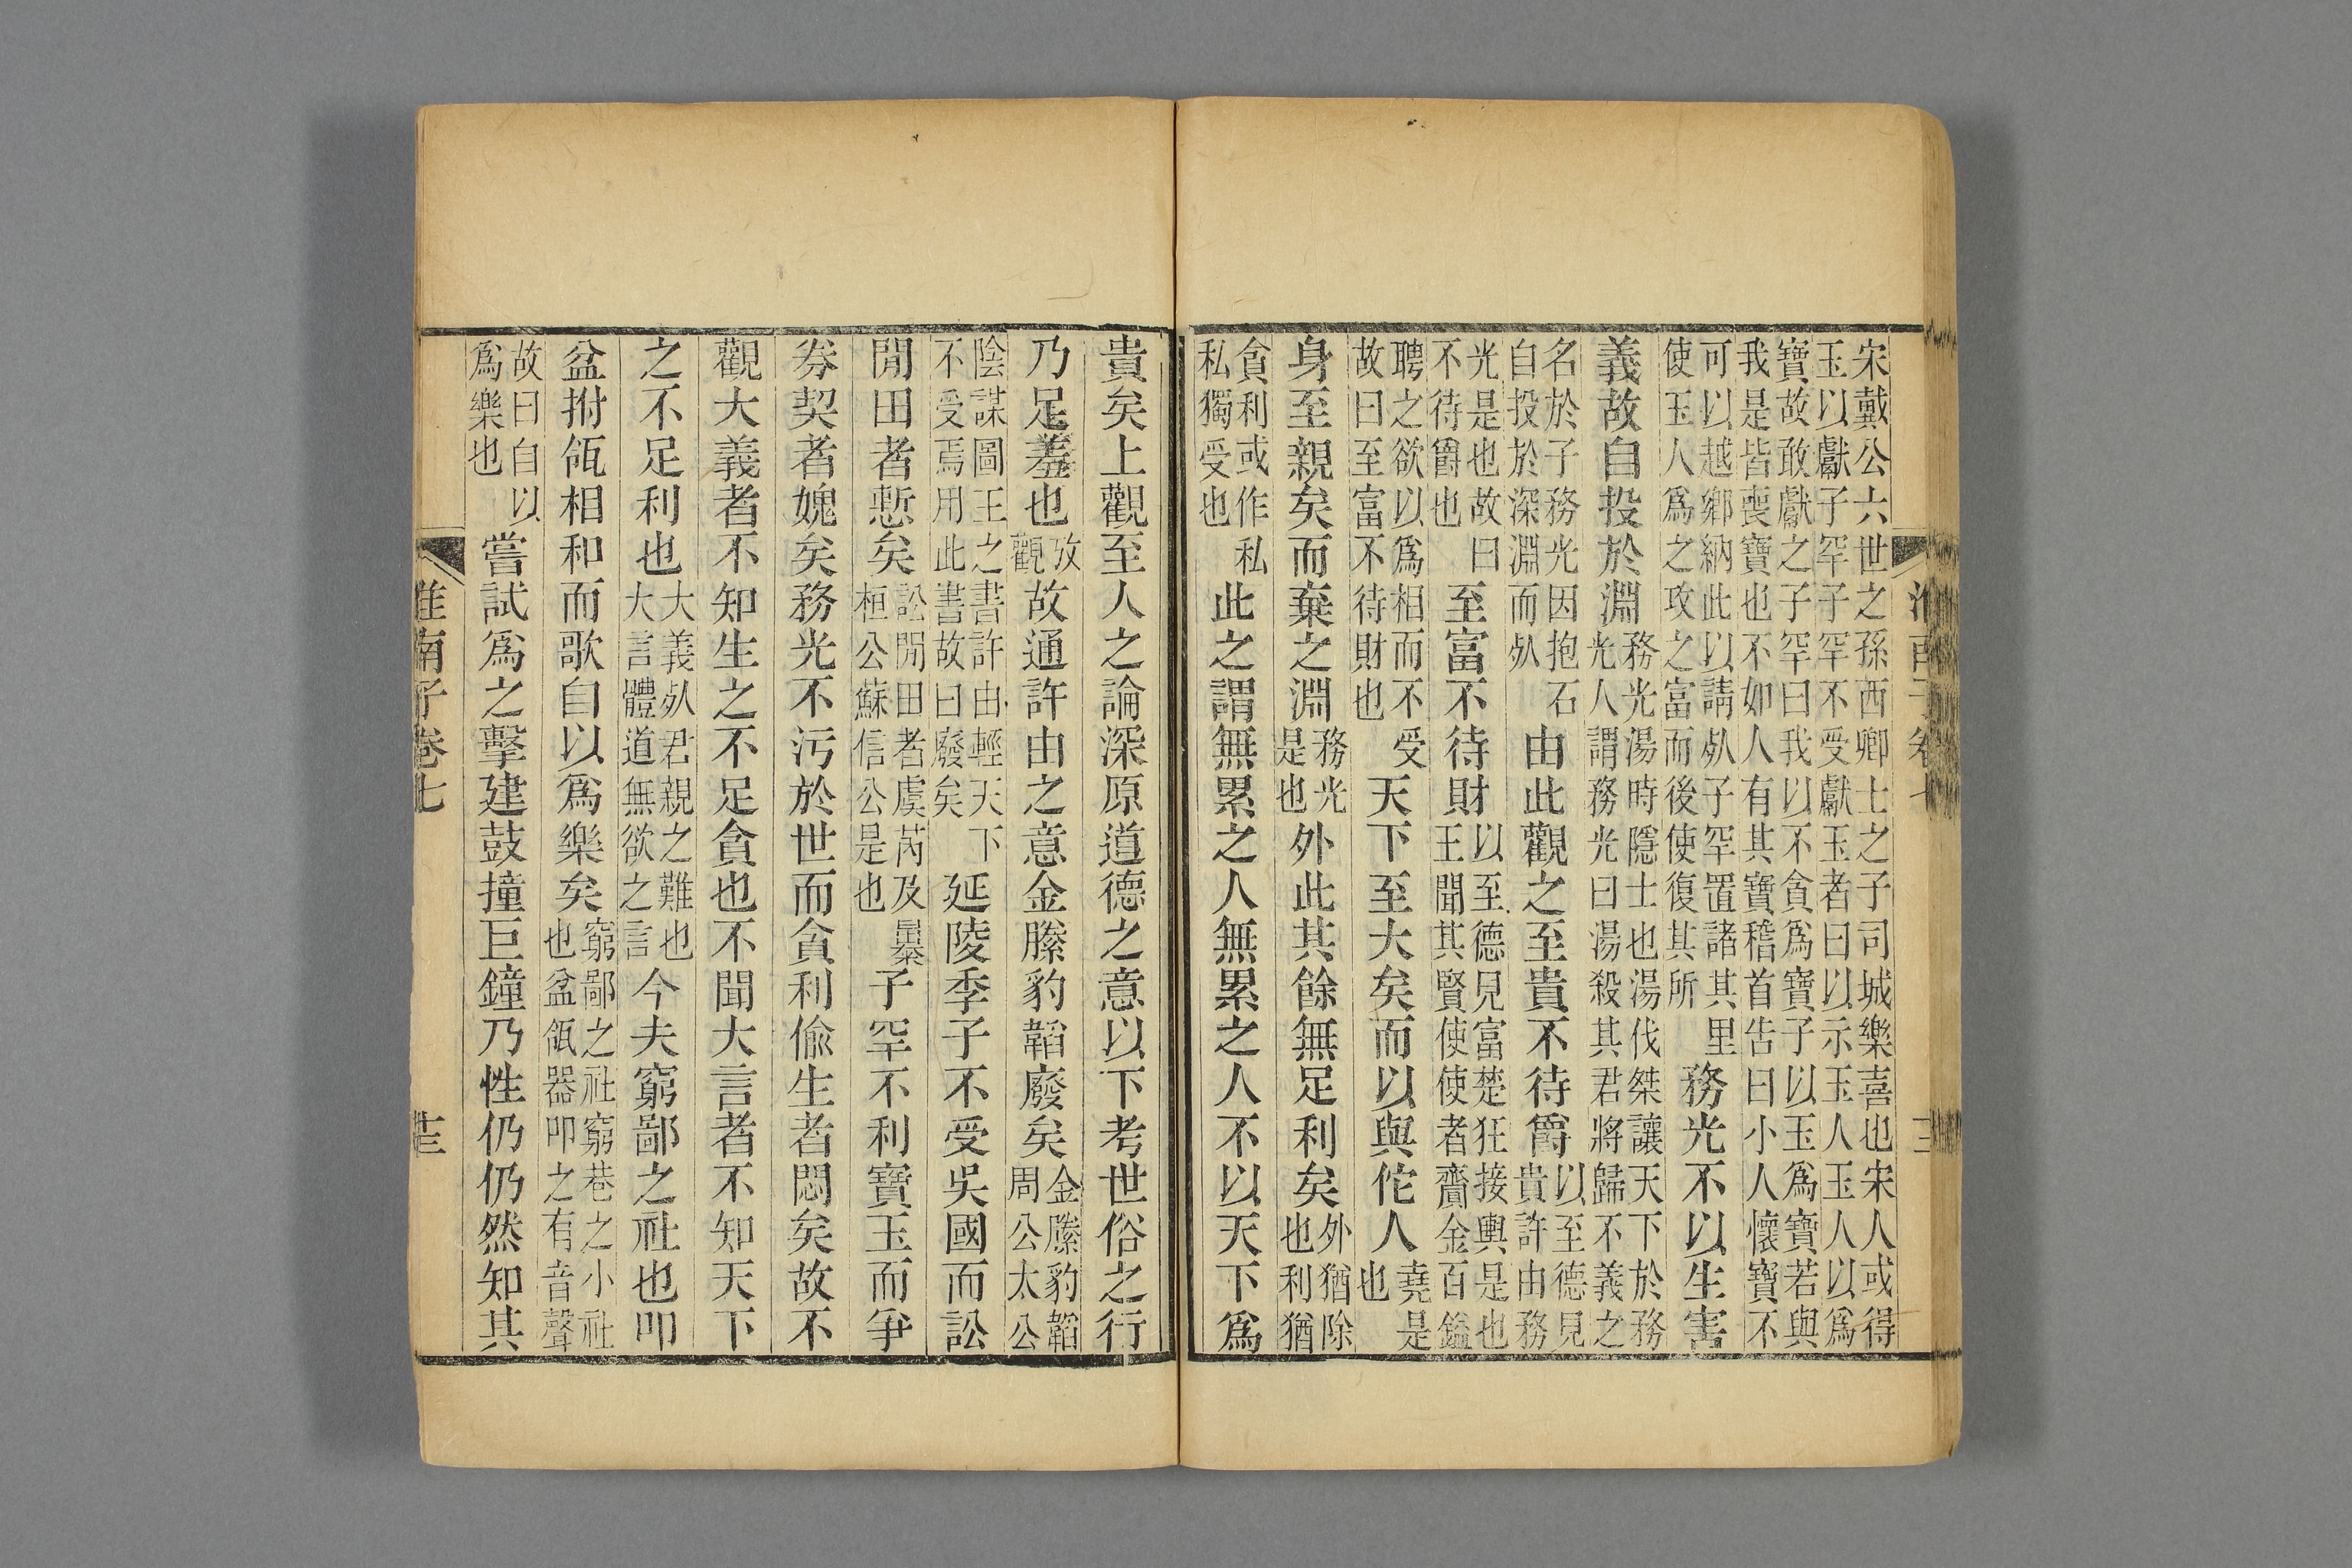 宋戴公六世之孫西卿士之子司城樂喜也宋人或得
玉以獻子罕子罕不受獻玉者曰以示玉人玉人以爲
寶故敢獻之子罕曰我以不貪爲寶子以玉爲寶若與
我是皆喪寶也不如人有其寶稽首告曰小人懷寶不
可以越鄉納此以請死子罕置諸其里
使玉人爲之攻之富而後使復其所
務光不以生害
義故自投於淵
務光湯時隱士也湯伐桀讓天下於務
光人謂務光曰湯殺其君將歸不義之
名於子務光因抱石
自投於深淵而死
由此觀之至貴不待爵
以至德見
貴許由務
光是也故曰
不待爵也
至富不待財
以至德見富楚狂接輿是也
王聞其賢使使者齎金百鎰
聘之欲以爲相而不受
故曰至富不待財也
天下至大矣而以與佗人
堯是
也
身至親矣而棄之淵
務光
是也
外此其餘無足利矣
外猶除
也利猶
貪利或作私
私獨受也
此之謂無累之人無累之人不以天下爲
貴矣上觀至人之論深原道德之意以下考世俗之行
乃足羞也
攷
觀
故通許由之意金縢豹韜廢矣
金縢豹韜
周公太公
陰謀圖王之書許由輕天下
不受焉用此書故曰廢矣
延陵季子不受吳國而訟
閒田者慙矣
訟閒田者虞芮及曓
桓公蘇信公是也
子罕不利寶玉而爭
券契者媿矣務光不污於世而貪利偷生者悶矣故不
觀大義者不知生之不足貪也不聞大言者不知天下
之不足利也
大義死君親之難也
大言體道無欲之言
今夫窮鄙之社也叩
盆拊瓴相和而歌自以爲樂矣
窮鄙之社窮巷之小社
也盆瓴器叩之有音聲
故曰自以
爲樂也
嘗試爲之擊建鼓撞巨鐘乃性仍仍然知其
淮南子卷七